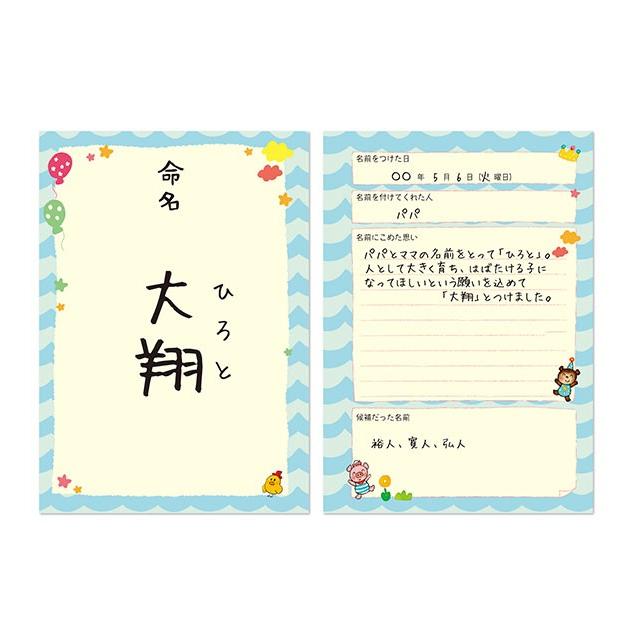 命名
大翔
ひろと
名前をつけた日
○○年 5月 6日(火曜日)
名前を付けてくれた人
パパ
名前にこめた思い
パパとママの名前をとって「ひろと」。
人として大きく育ち、はばたける子に
なってほしいという願いを込めて
「大翔」とつけました。
候補だった名前
裕人、寛人、弘人